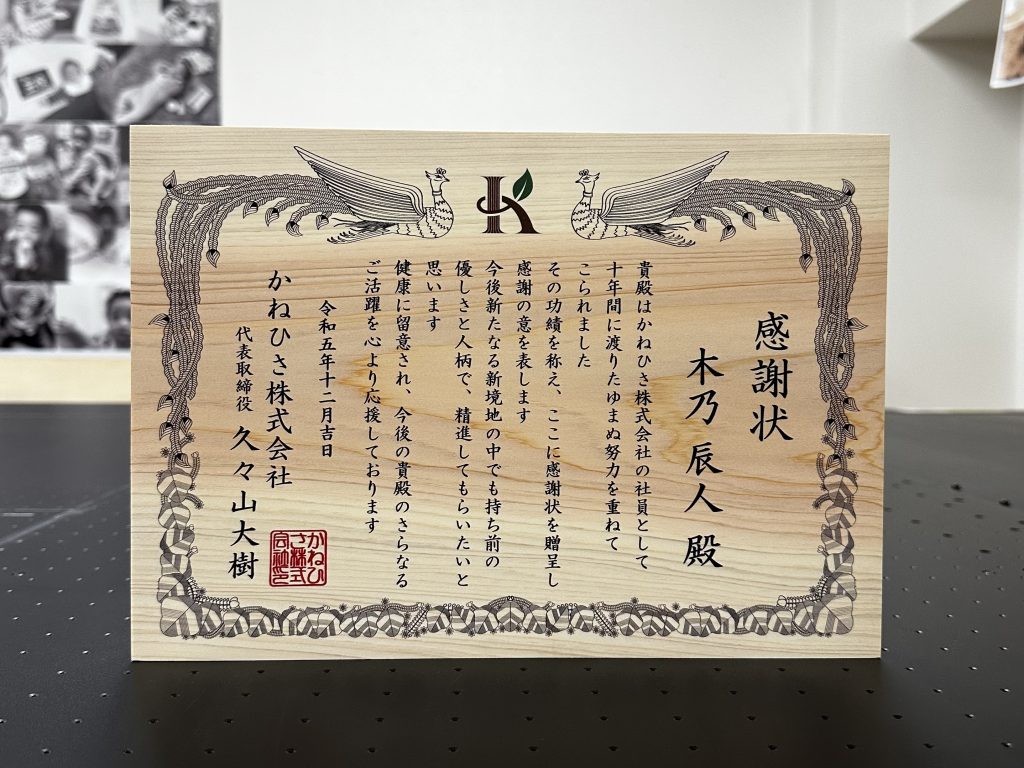 K
感謝状
木乃 辰人 殿
貴殿はかねひさ株式会社の社員として
十年間に渡りたゆまぬ努力を重ねて
こられました
その功績を称え、ここに感謝状を贈呈し
感謝の意を表します
今後新たなる新境地の中でも持ち前の
優しさと人柄で、精進してもらいたいと
思います
健康に留意され、今後の貴殿のさらなる
ご活躍を心より応援しております
令和五年十二月吉日
かねひさ株式会社
代表取締役 久々山大樹
かねひ
さ株式
会社印